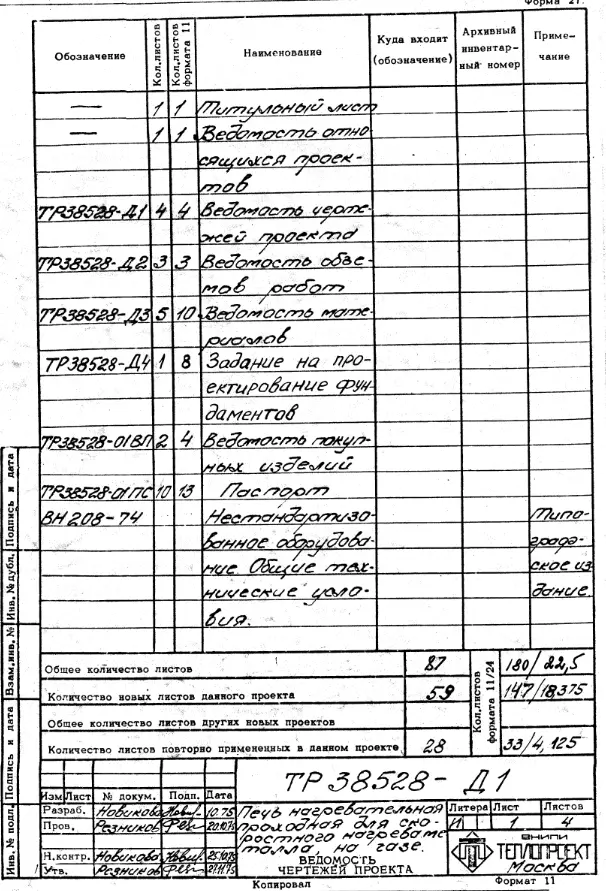 Форма 21.
Обозначение Кол.листов Кол.листов формата 11 Наименование Куда входит (обозначение) Архивный инвентар- ный номер Приме- чание
— 1 1 Титульный лист
— 1 1 Ведомость отно-
сящихся проек-
тов
ТР38528-Д1 4 4 Ведомость черте-
жей проекта
ТР38528-Д2 3 3 Ведомость объе-
мов работ
ТР38528-Д3 5 10 Ведомость мате-
риалов
ТР38528-Д4 1 8 Задание на про-
ектирование фун-
даментов
ТР38528-01ВП 2 4 Ведомость покуп-
ных изделий
ТР38528-01ПС 10 13 Паспорт
ВН208-74 Нестандартизо- Типо-
ванное оборудова- граф-
ние. Общие тех- ское из
нические усло- дание.
вия.
Общее количество листов 87 Кол.листов формата 11/24 180/22,5
Количество новых листов данного проекта 59 147/18,375
Общее количество листов других новых проектов
Количество листов повторно примененных в данном проекте 28 33/4,125
ТР38528-Д1
Изм Лист № докум. Подп. Дата
Разраб. Новикова 10.75
Пров. Резников 20.10.75
Н.контр. Новикова 25.10.75
Утв. Резников 21.11.75
Печь нагревательная
проходная для ско-
ростного нагрева ме
талла, на газе.
ВЕДОМОСТЬ
ЧЕРТЕЖЕЙ ПРОЕКТА
Литера Лист Листов
И 1 4
ВНИПИ
ТЕПЛОПРОЕКТ
Москва
Копировал Формат 11
Инв. № подл. Подпись и дата Взам.инв. № Инв. № дубл. Подпись и дата